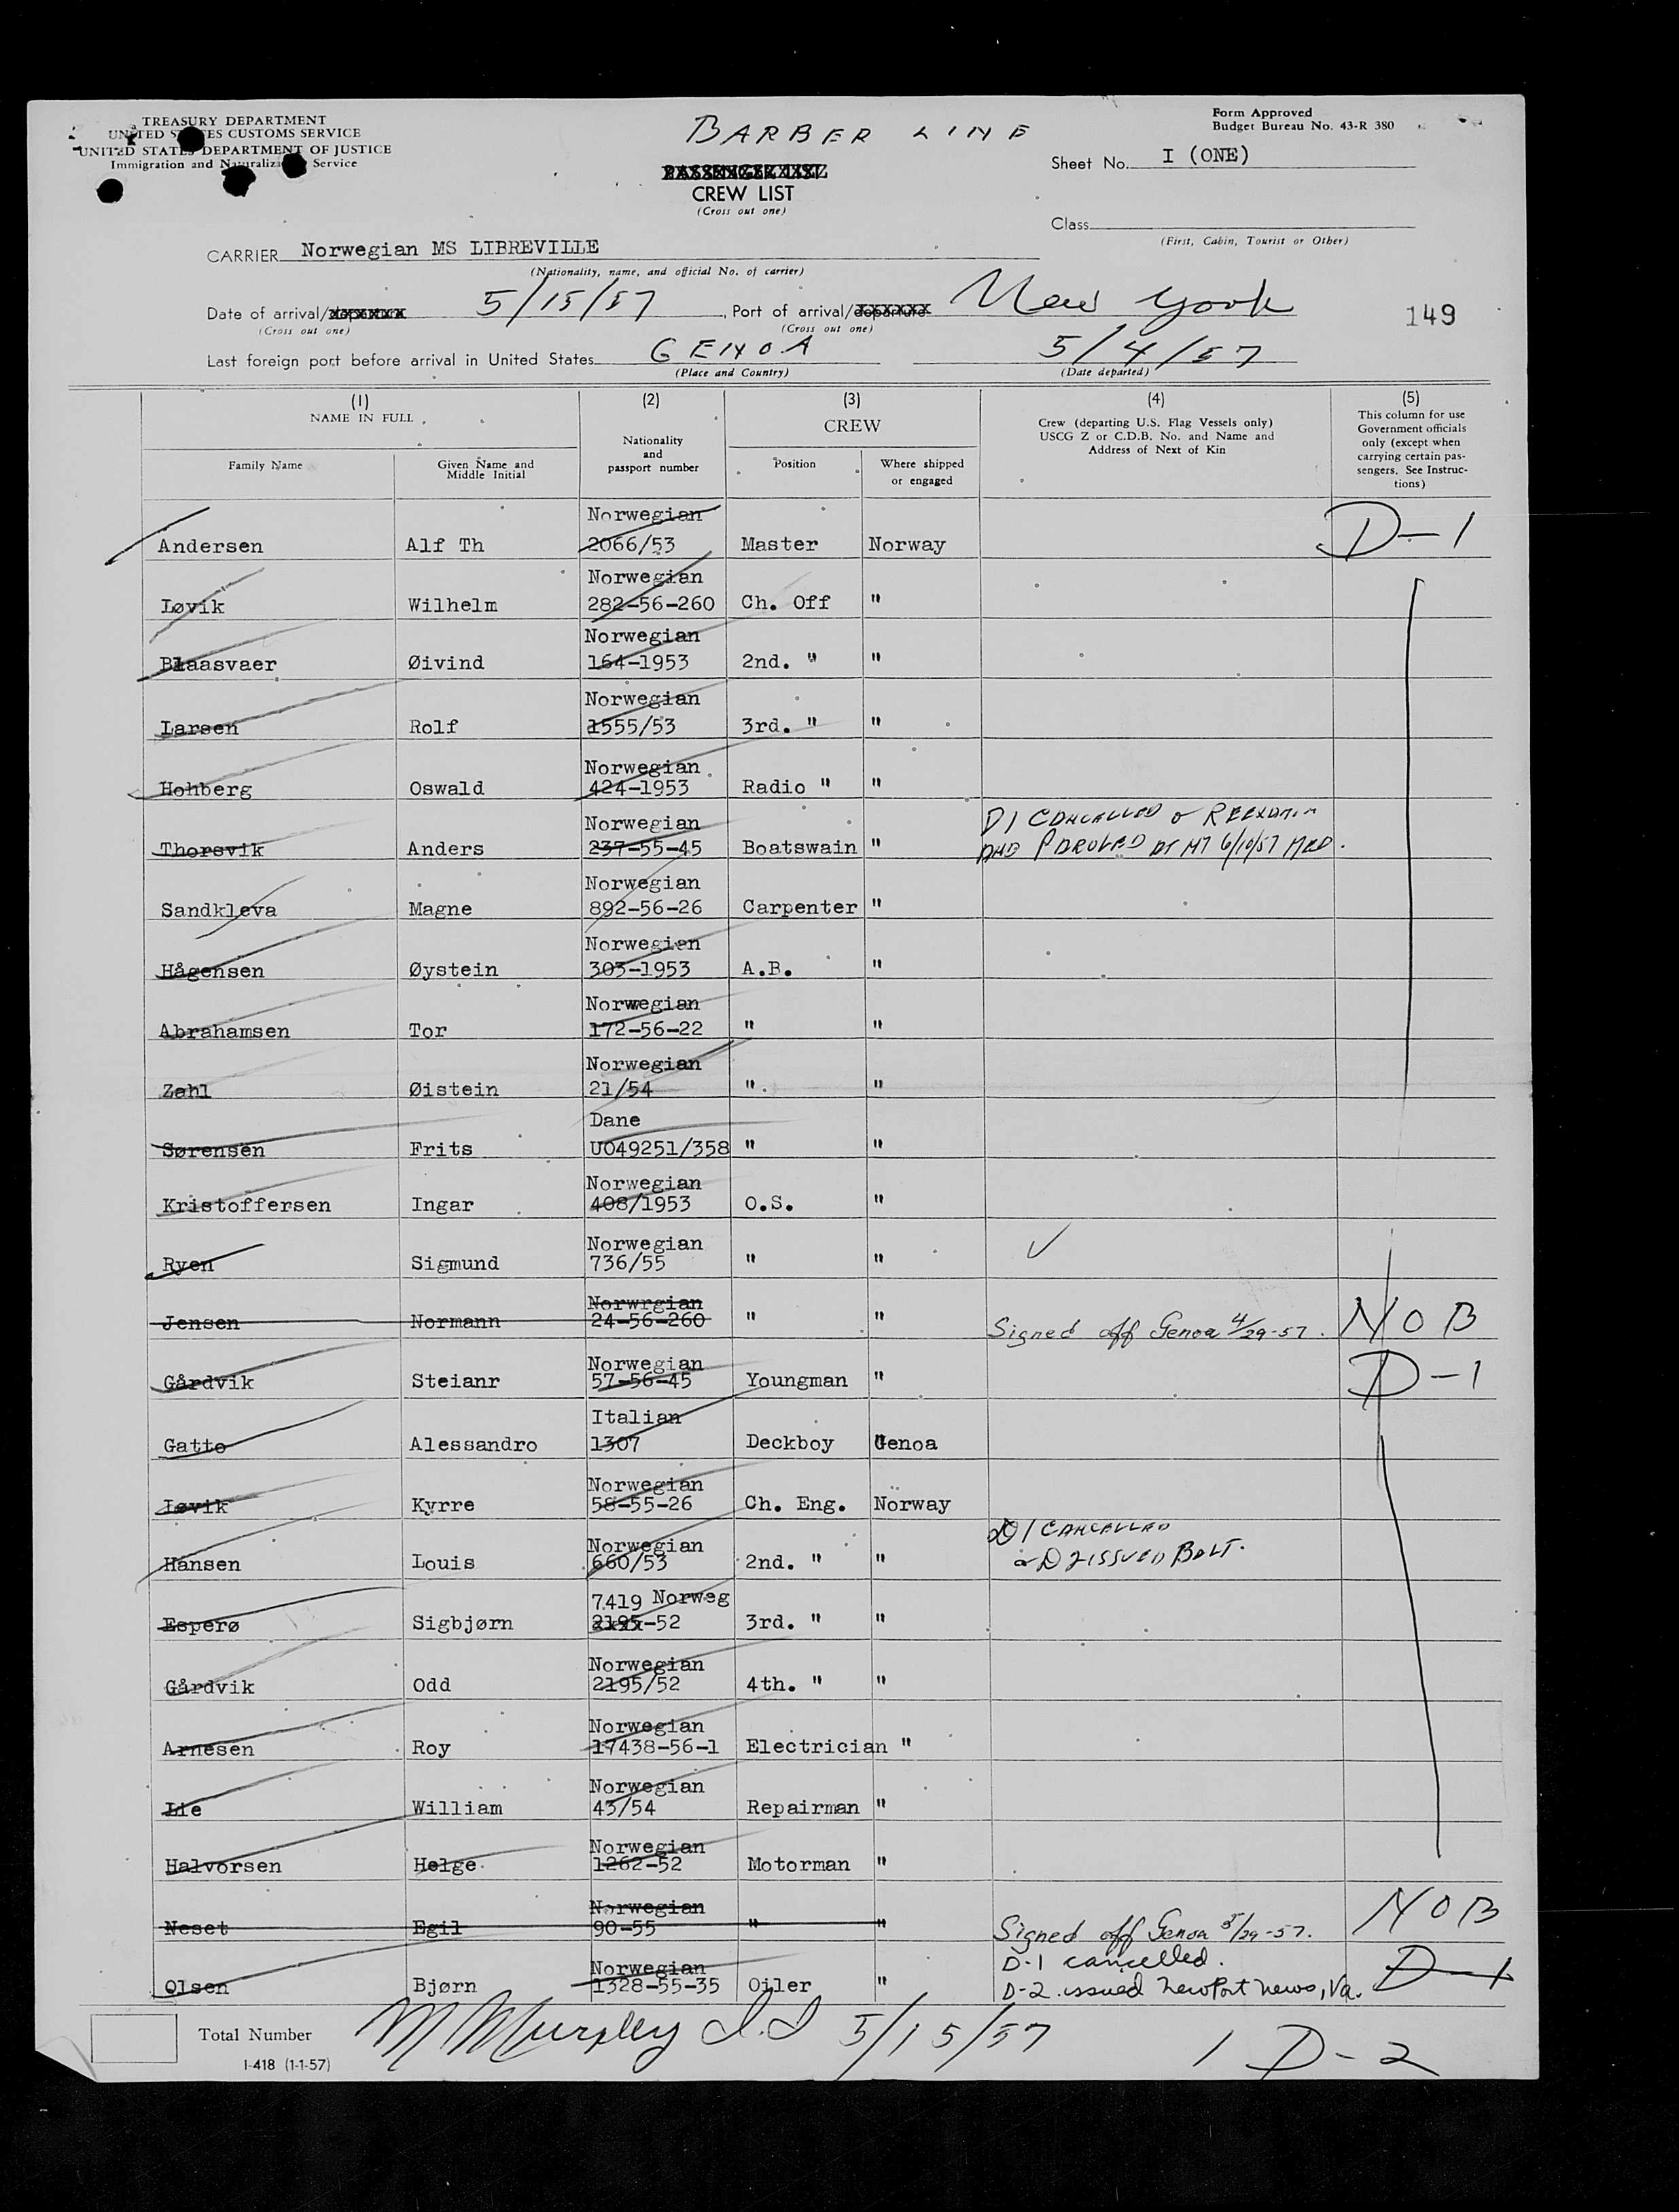 TREASURY DEPARTMENT
UNITED STATES CUSTOMS SERVICE
UNITED STATES DEPARTMENT OF JUSTICE
Immigration and Naturalization Service
BARBER LINE
Form Approved
Budget Bureau No. 43-R 380
PASSENGER LIST
CREW LIST
(Cross out one)
Sheet No. I (ONE)
Class
(First, Cabin, Tourist or Other)
CARRIER Norwegian MS LIBREVILLE
(Nationality, name, and official No. of carrier)
Date of arrival/departure 5/15/57, Port of arrival/departure New York
(Cross out one) (Cross out one)
149
Last foreign port before arrival in United States GENOA 5/4/57
(Place and Country) (Date departed)
(1) NAME IN FULL
Family Name
Given Name and Middle Initial
(2) Nationality and passport number
(3) CREW
Position
Where shipped or engaged
(4) Crew (departing U.S. Flag Vessels only) USCG Z or C.D.B. No. and Name and Address of Next of Kin
(5) This column for use Government officials only (except when carrying certain passengers. See Instructions)
Andersen Alf Th Norwegian 2066/53 Master Norway D-1
Løvik Wilhelm Norwegian 282-56-260 Ch. Off "
Blaasvaer Øivind Norwegian 164-1953 2nd. " "
Larsen Rolf Norwegian 1555/53 3rd. " "
Hohberg Oswald Norwegian 424-1953 Radio " "
Thorsvik Anders Norwegian 237-55-45 Boatswain " D1 CANCELLED
AND PAROLED AT 6/10/57
Sandkleva Magne Norwegian 892-56-26 Carpenter "
Hågensen Øystein Norwegian 303-1953 A.B. "
Abrahamsen Tor Norwegian 172-56-22 " "
Zahl Øistein Norwegian 21/54 " "
Sørensen Frits Dane U049251/358 " "
Kristoffersen Ingar Norwegian 408/1953 O.S. "
Ryen Sigmund Norwegian 736/55 " " ✓
Jensen Normann Norwrgian 24-56-260 " " Signed off Genoa 4/29-57. NOB
Gårdvik Steianr Norwegian 57-56-45 Youngman " D-1
Gatto Alessandro Italian 1307 Deckboy Genoa
Løvik Kyrre Norwegian 58-55-26 Ch. Eng. Norway
Hansen Louis Norwegian 660/53 2nd. " " D1 CANCELLED
D2 ISSUED BALT.
Esperø Sigbjørn 7419 Norweg 2195-52 3rd. " "
Gårdvik Odd Norwegian 2195/52 4th. " "
Arnesen Roy Norwegian 17438-56-1 Electrician "
Lie William Norwegian 43/54 Repairman "
Halvorsen Helge Norwegian 1262-52 Motorman "
Neset Egil Norwegian 90-55 " " Signed off Genoa 3/29-57. NOB
Olsen Bjørn Norwegian 1328-55-35 Oiler " D-1 cancelled.
D-2 issued Newport News, Va. D-1
Total Number
I-418 (1-1-57)
M Murphy 5/15/57
1 D-2